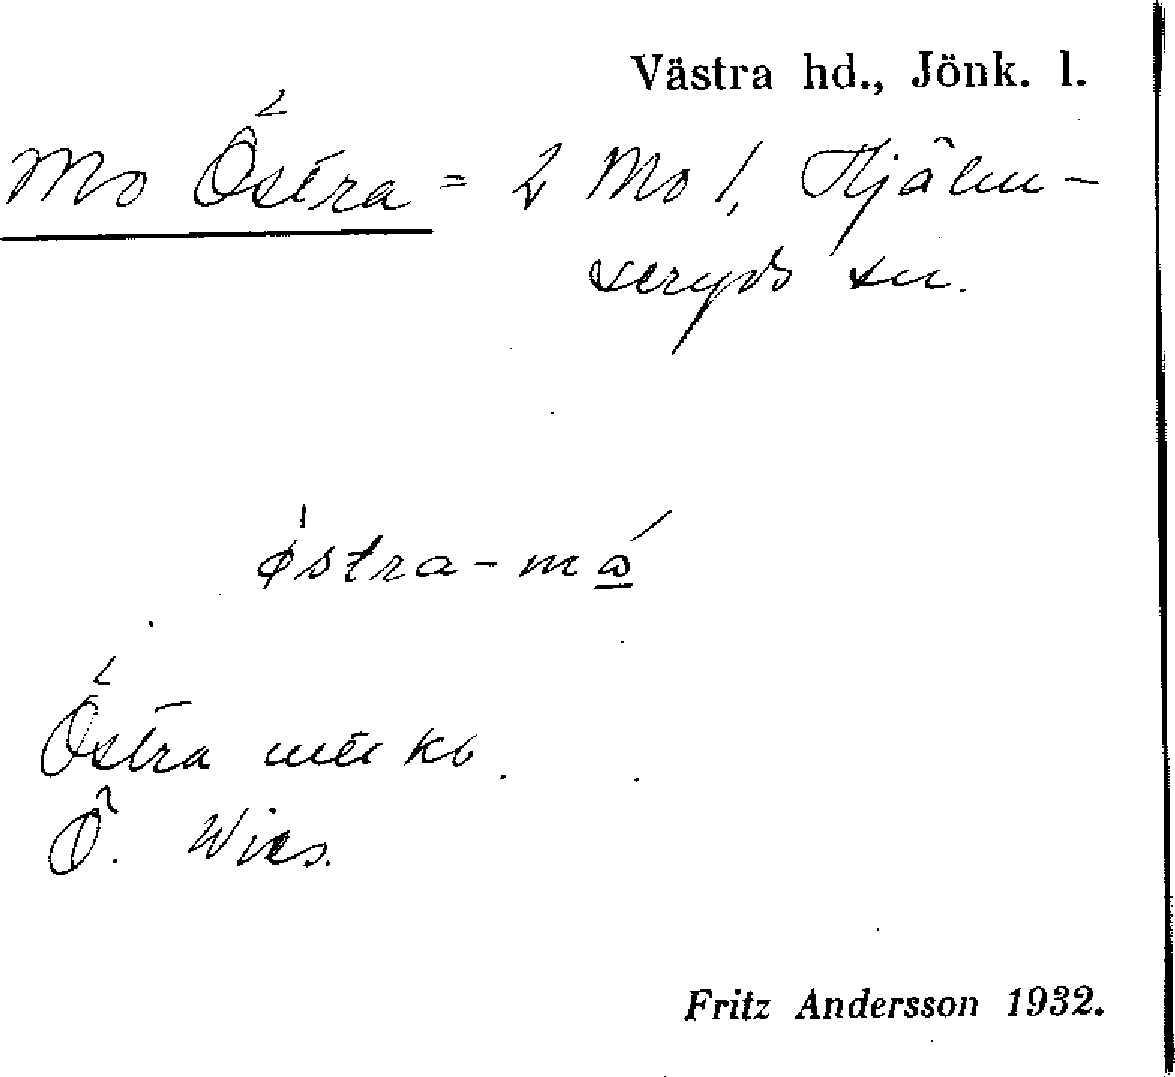 Västra hd., Jönk. l.
Mo Östra = 2 Mo 1, Hjälm-
seryds sn.
östra-må
Östra
Ö. Wies.
Fritz Andersson 1932.